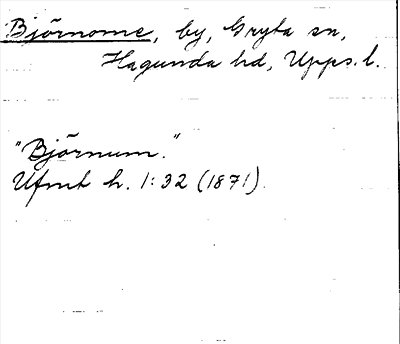 Björnome, by, Gryta sn,
Hagunda hd, Upps. l.
"Björnum."
Ufmt h. 1:32 (1871)